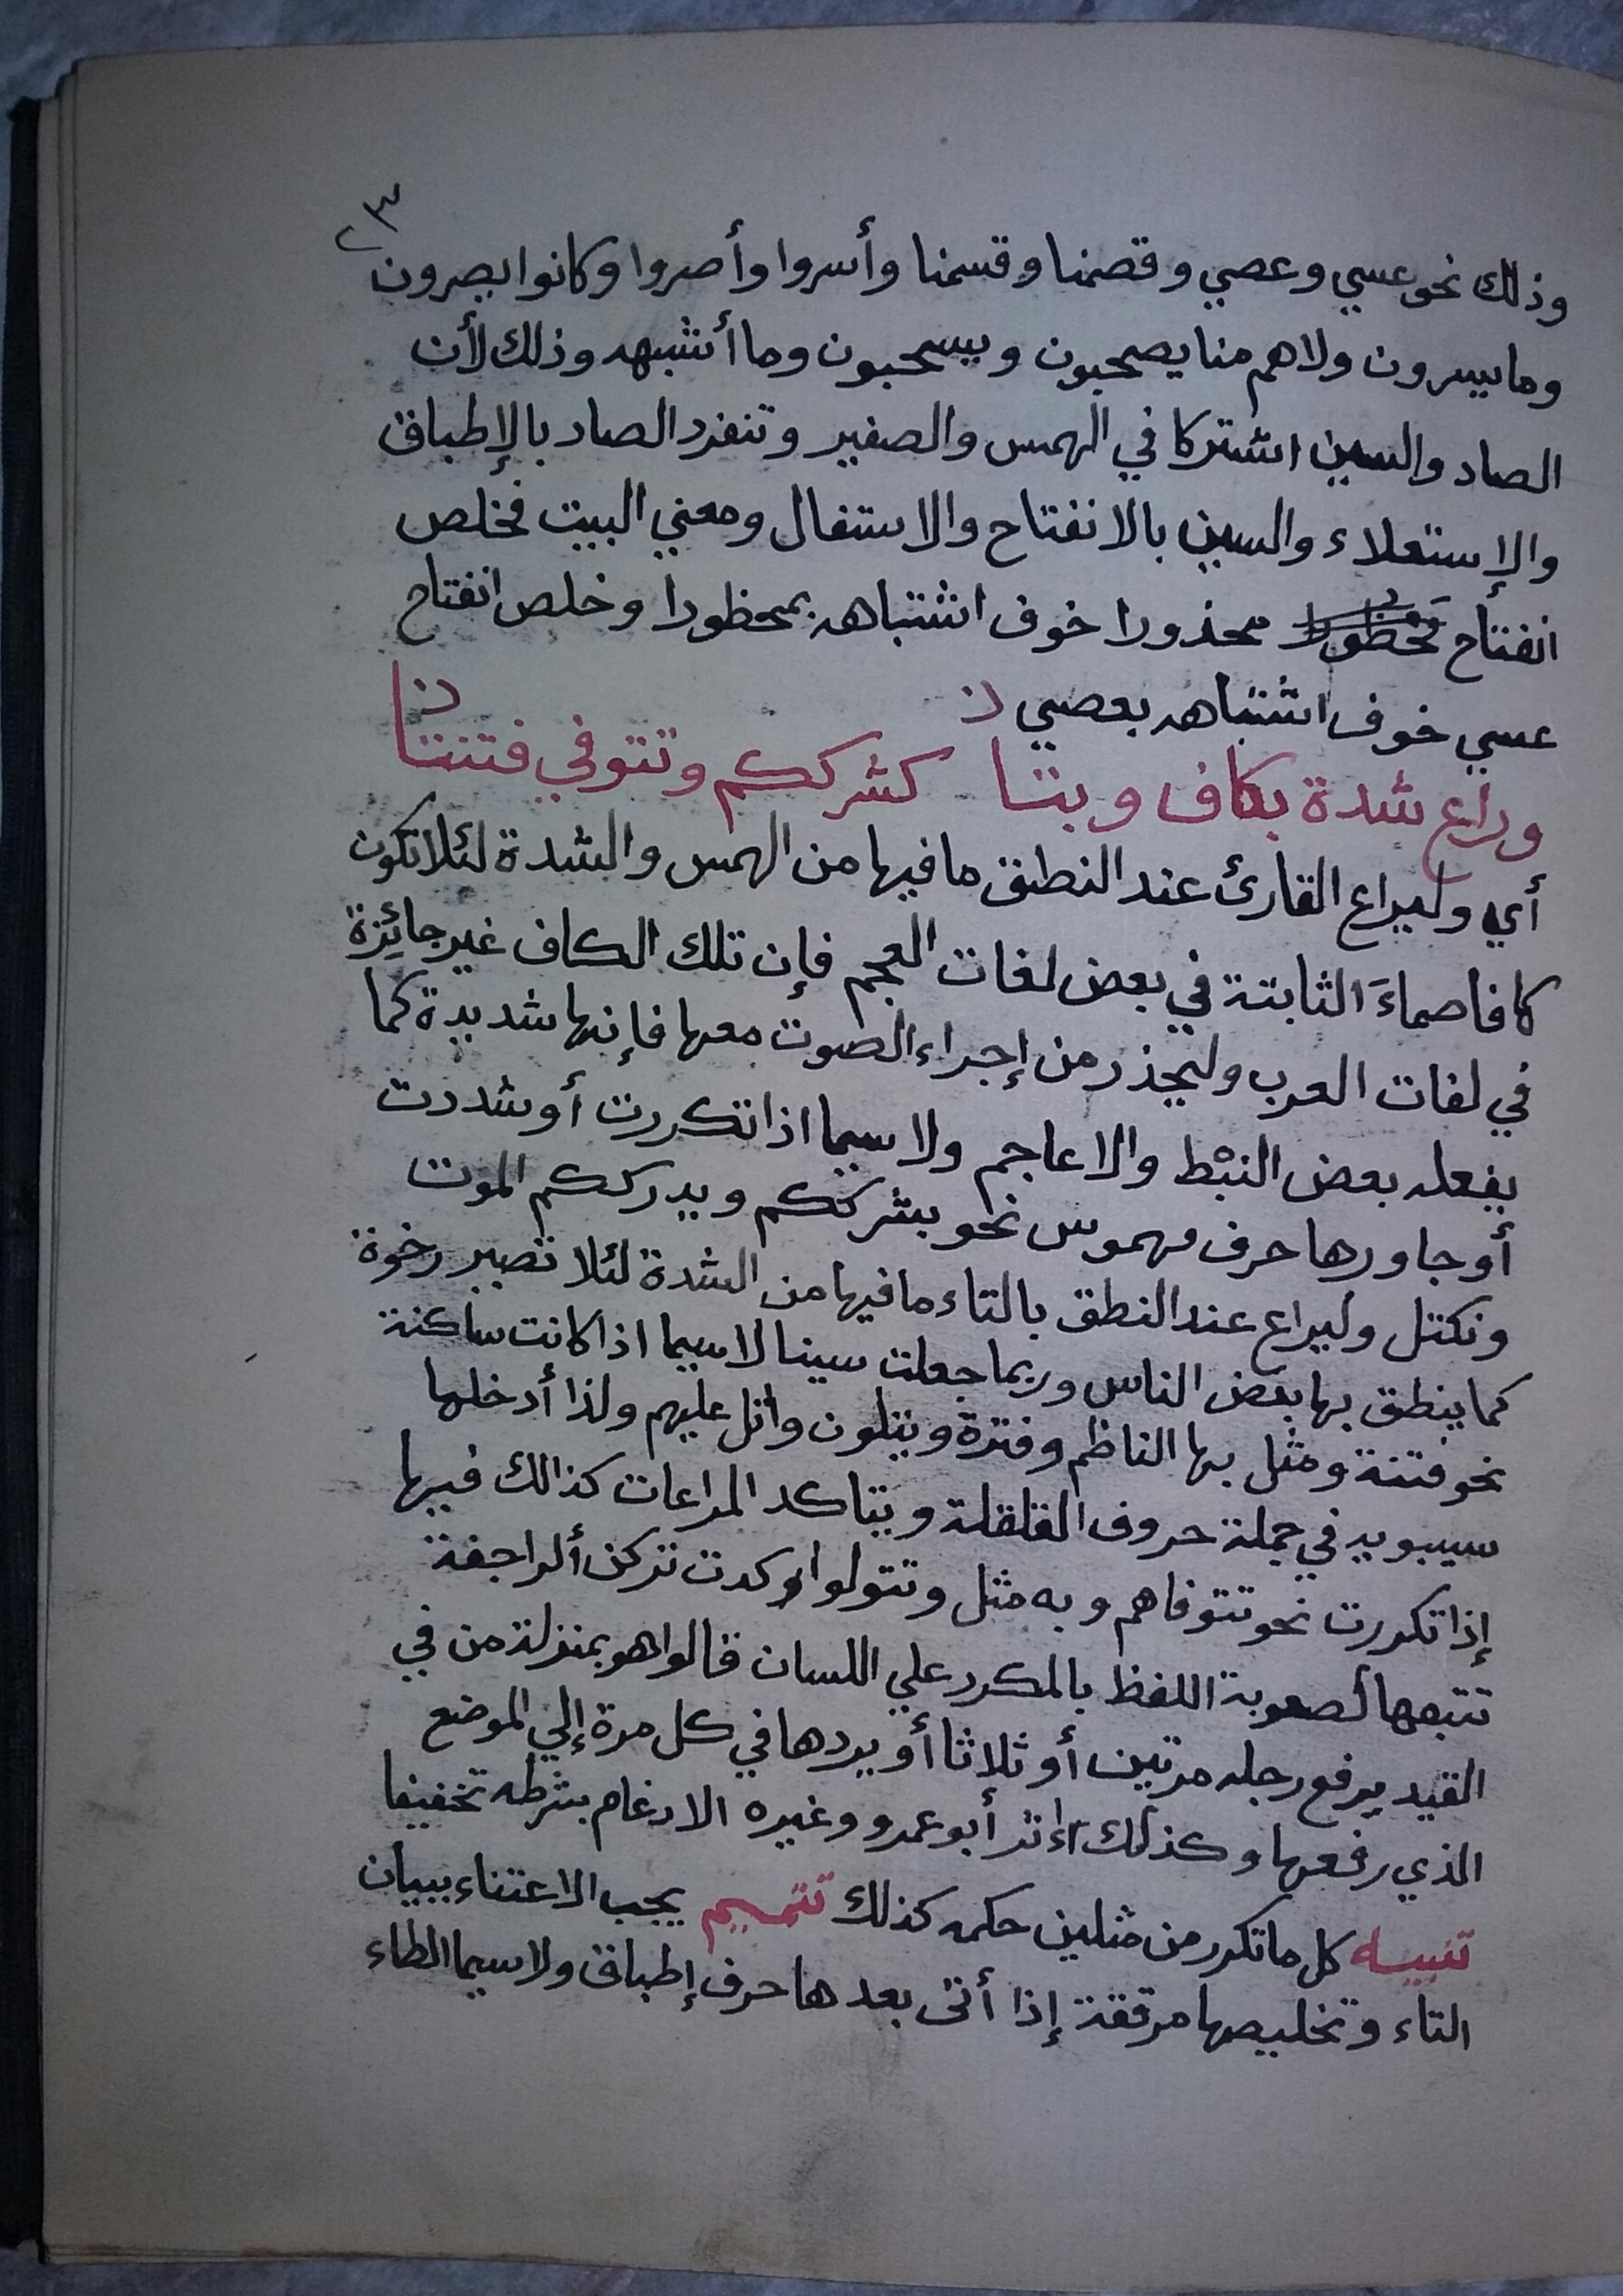 ٢٣
وذلك نحو عسي وعصي وقصمنا وقسمنا وأسروا وأصروا وكانوا يصرون
وما يسرون ولاهم منا يصحبون ويسحبون وما أشبهه وذلك لأن
الصاد والسين اشتركا في الهمس والصفير وتنفرد الصاد بالإطباق
والإستعلاء والسين بالانفتاح والاستفال ومعني البيت فخلص
انفتاح محذورا خوف اشتباهه بمحظورا وخلص انفتاح
عسي خوف اشتباهه بعصي
وراع شدة بكاف وبتا كشرككم وتتوفي فتنتا
أي وليراع القارئ عند النطق ما فيها من الهمس والشدة لئلا تكون
كافا صماءَ الثابتة في بعض لغات العجم فإن تلك الكاف غير جائزة
في لغات العرب وليحذر من إجراء الصوت معها فإنها شديدة كما
يفعله بعض النبْط والاعاجم ولا سيما اذا تكررت أو شددت
أو جاورها حرف مهموس نحو بشرككم ويدرككم الموت
ونكتل وليراع عند النطق بالتاء ما فيها من الشدة لئلا تصير رخوة
كما ينطق بها بعض الناس وربما جعلت سينا لا سيما اذا كانت ساكنة
نحو فتنة ومثل بها الناظم وفترة ويتلون واتل عليهم ولذا أدخلها
سيبويه في جملة حروف القلقلة ويتاكد المراعات كذالك فيها
إذا تكررت نحو تتوفاهم وبه مثل وتتولوا وكدت تركن ألراجفة
تتبعها لصعوبة اللفظ بالمكرر علي اللسان قالوا هو بمنزلة من في
القيد يرفع رجله مرتين أو ثلاثا أو يردها في كل مرة إلي الموضع
الذي رفعها وكذلك اٰثر أبو عمرو وغيره الادغام بشرطه تخفيفا
تنبيه كل ما تكرر من مثلين حكمه كذلك تتميم يجب الاعتناء ببيان
التاء وتخليصها مرققة إذا أتى بعدها حرف إطباق ولا سيما الطاء